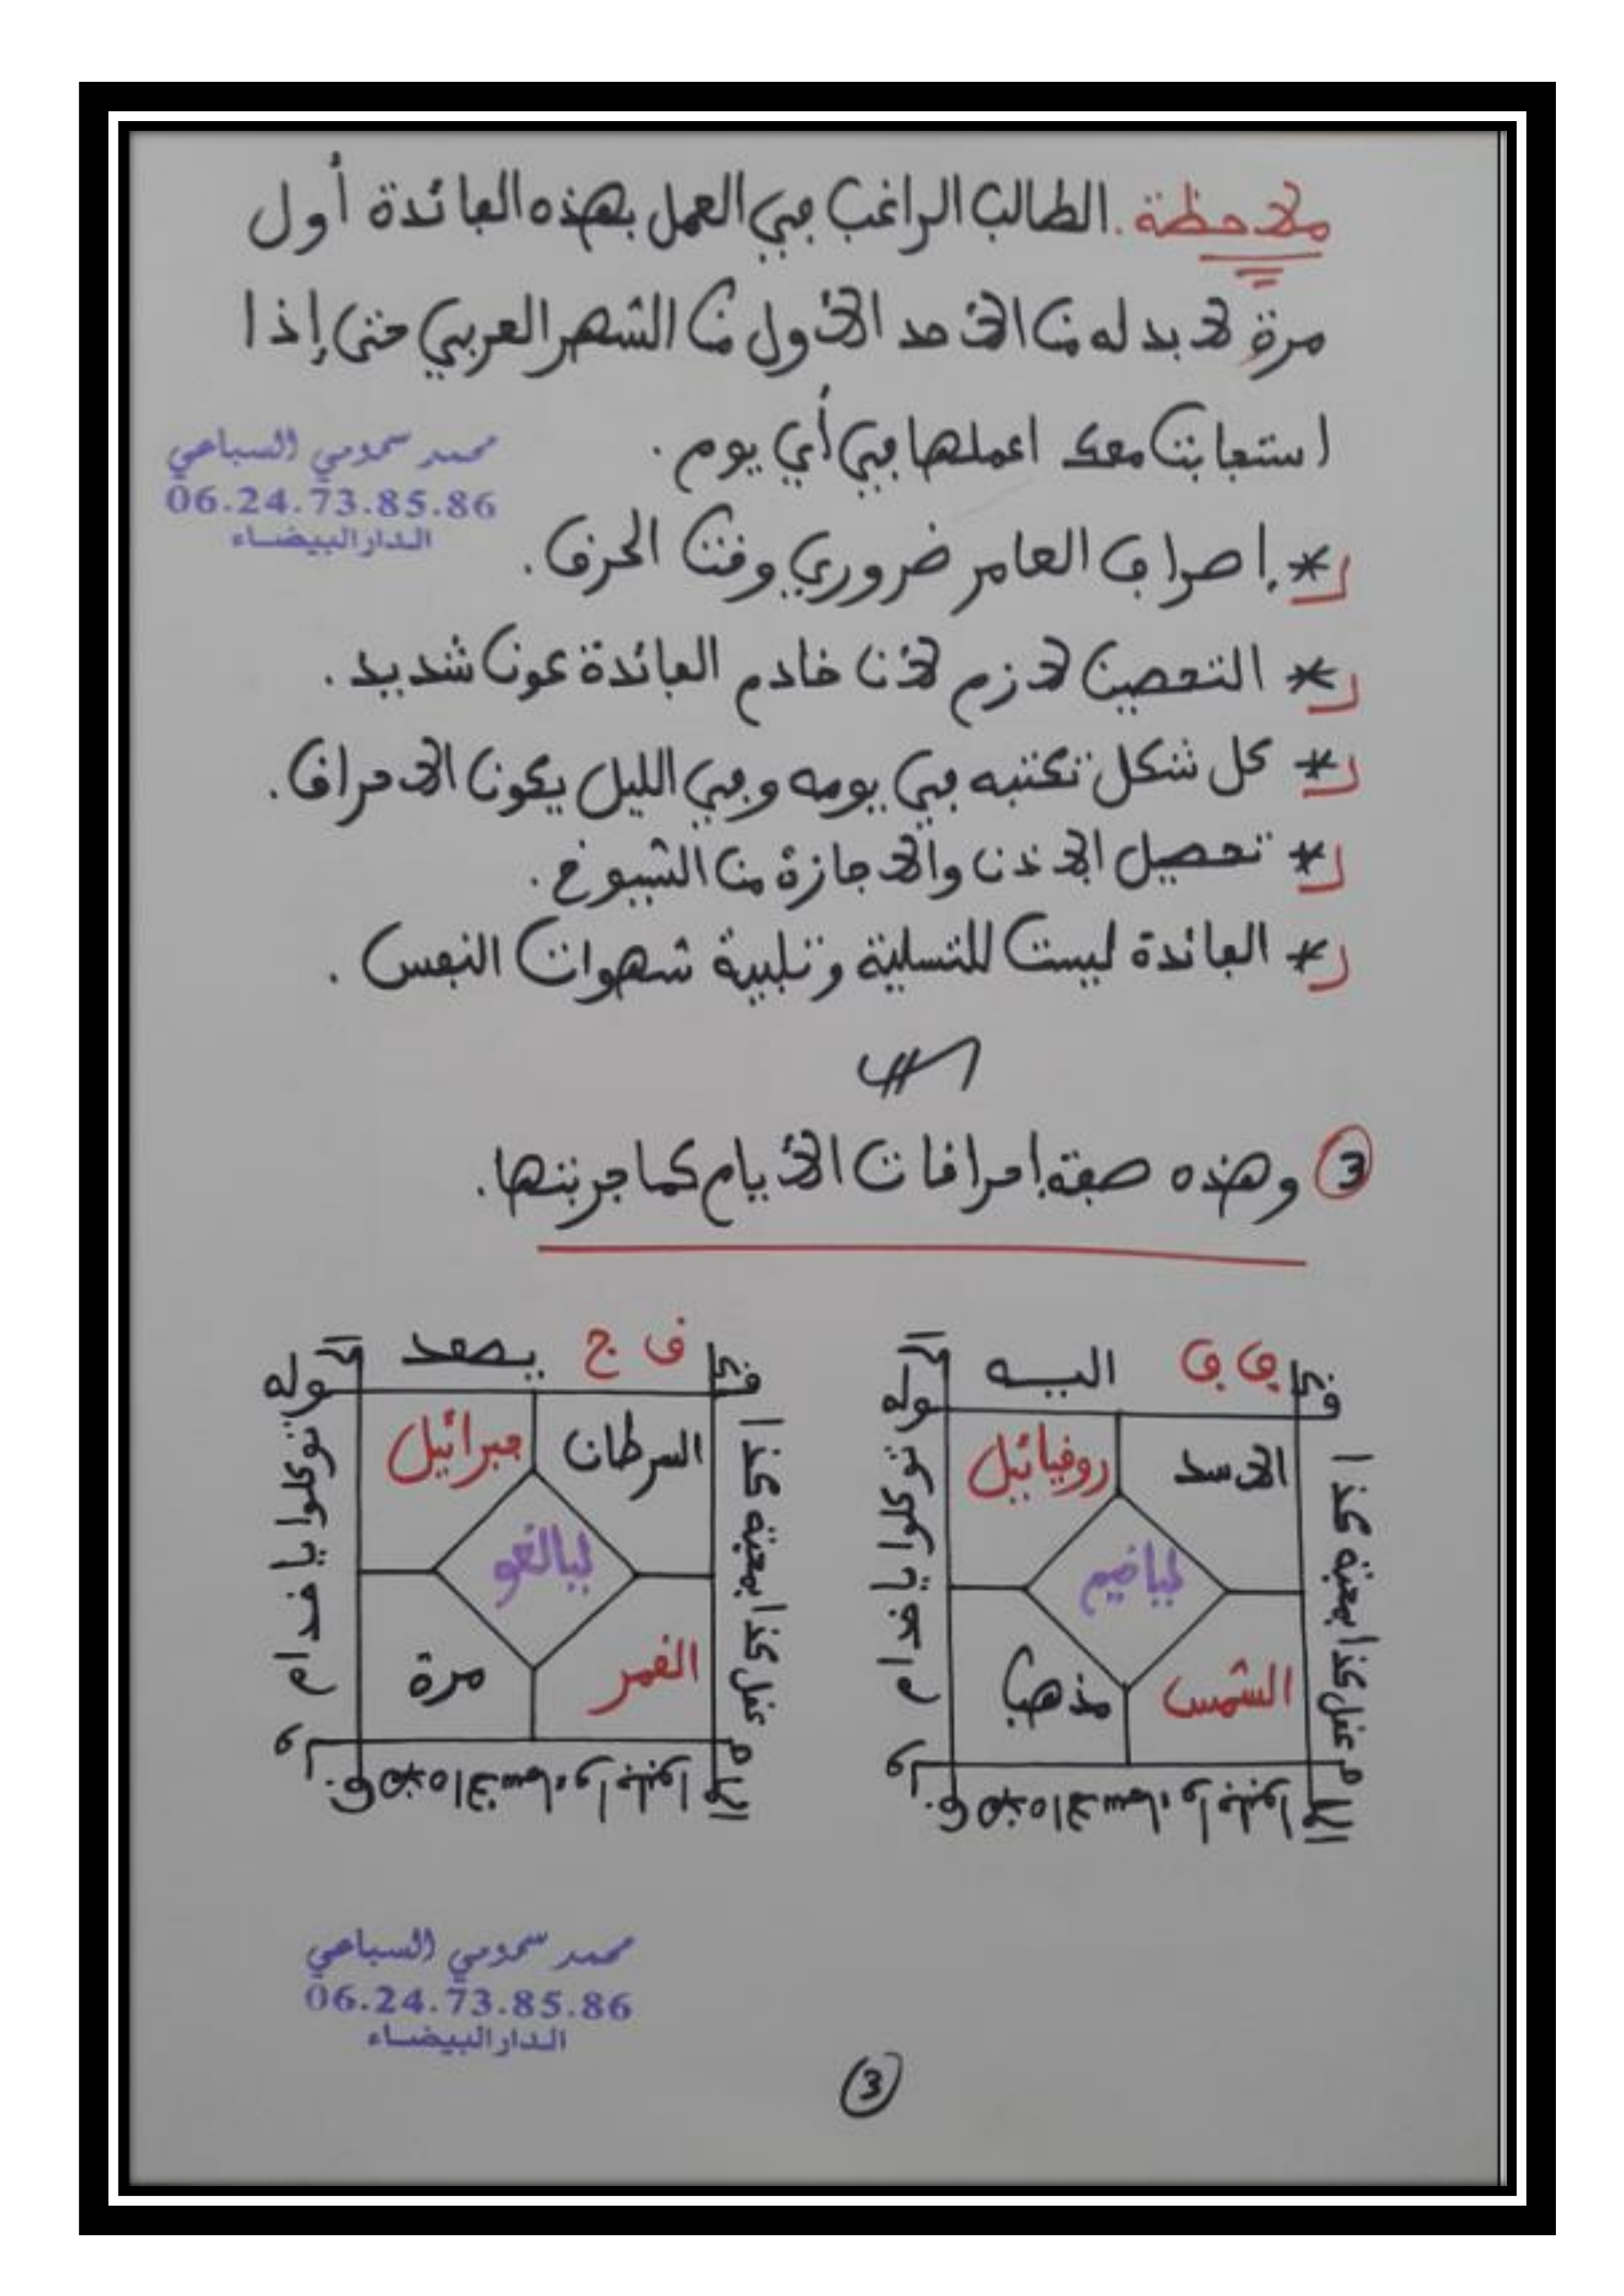 ملاحظة. الطالب الراغب في العمل بهذه الفائدة أول
مرة لا بد له من الأحد الأول من الشهر العربي حتى إذا
استجابت معك اعملها في أي يوم.
محمد سحمومي السباعي
06.24.73.85.86
الدار البيضاء
* إصراف العامر ضروري وقت الحرق.
* التحصين لازم لأن خادم الفائدة عون شديد.
* كل شكل تكتبه في يومه وفي الليل يكون الاحراق.
* تحصيل الإذن والاجازة من الشيوخ.
* الفائدة ليست للتسلية وتلبية شهوات النفس.
3 وهذه صفة إحراقات الأيام كما جربتها.
ف ف اليه
الاسد روفيائيل
لياخيم
الشمس مذهب
توكلوا يا خدام
عقل كذا بمحبة كذا
ف ج يصعد
السرطان جبرائيل
ليالغو
القمر مرة
توكلوا يا خدام
عقل كذا بمحبة كذا
محمد سحمومي السباعي
06.24.73.85.86
الدار البيضاء
3